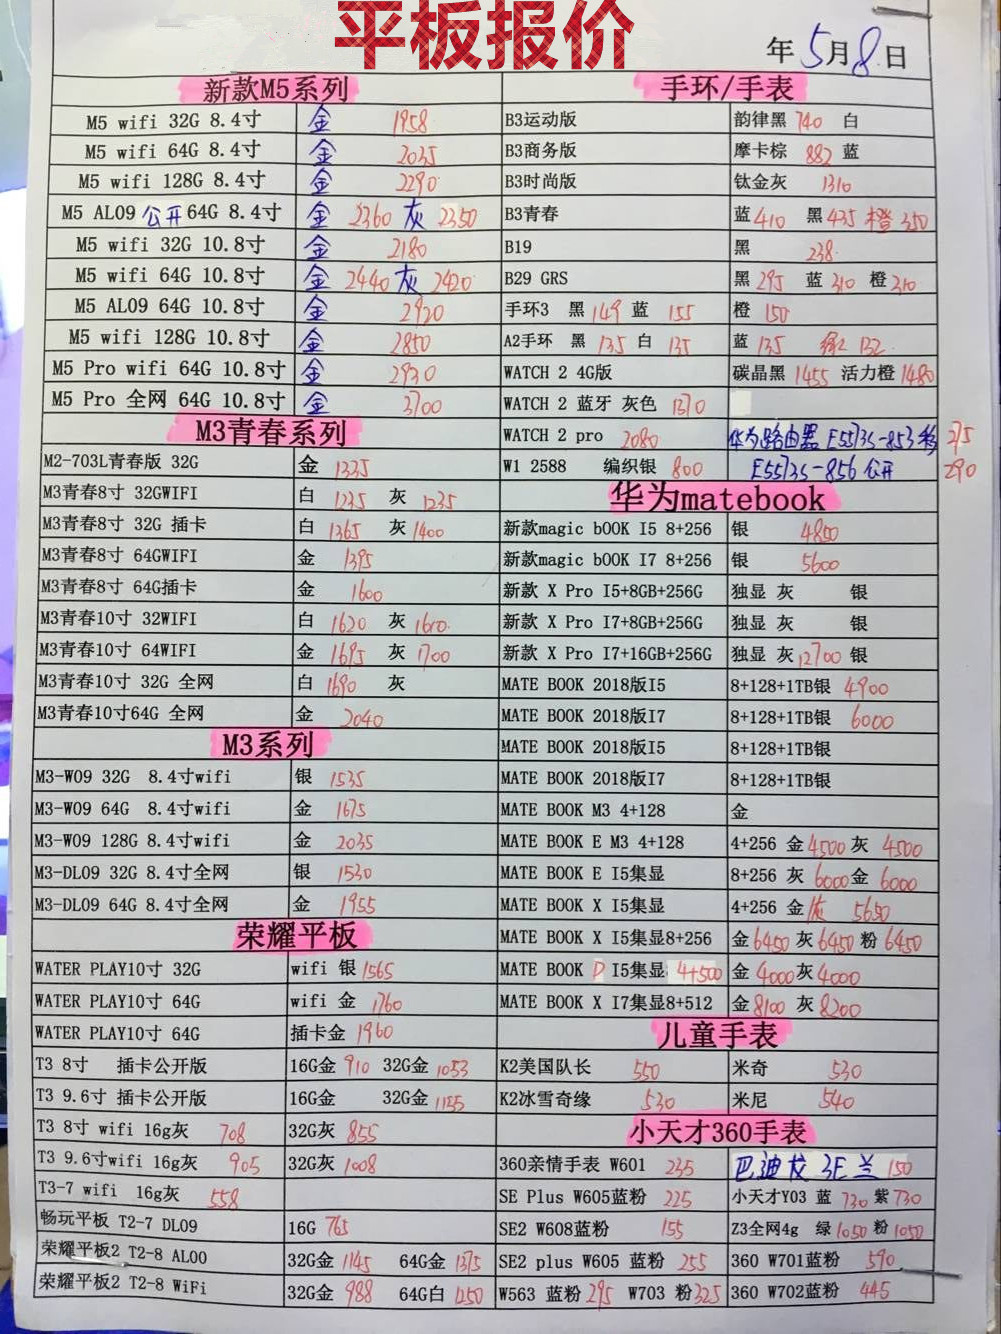 平板报价
年5月8日
新款M5系列
M5 wifi 32G 8.4寸 金 1958
M5 wifi 64G 8.4寸 金 2035
M5 wifi 128G 8.4寸 金 2290
M5 AL09 公开 64G 8.4寸 金 2360 灰 2350
M5 wifi 32G 10.8寸 金 2180
M5 wifi 64G 10.8寸 金 2440 灰 2420
M5 AL09 64G 10.8寸 金 2920
M5 wifi 128G 10.8寸 金 2850
M5 Pro wifi 64G 10.8寸 金 2930
M5 Pro 全网 64G 10.8寸 金 3700
M3青春系列
M2-703L青春版 32G 金 1335
M3青春8寸 32GWIFI 白 1235 灰 1235
M3青春8寸 32G 插卡 白 1365 灰 1400
M3青春8寸 64GWIFI 金 1395
M3青春8寸 64G插卡 金 1600
M3青春10寸 32WIFI 白 1620 灰 1610
M3青春10寸 64WIFI 金 1695 灰 1700
M3青春10寸 32G 全网 白 1690 灰
M3青春10寸64G 全网 金 2040
M3系列
M3-W09 32G 8.4寸wifi 银 1535
M3-W09 64G 8.4寸wifi 金 1675
M3-W09 128G 8.4寸wifi 金 2035
M3-DL09 32G 8.4寸全网 银 1530
M3-DL09 64G 8.4寸全网 金 1955
荣耀平板
WATER PLAY10寸 32G wifi 银 1565
WATER PLAY10寸 64G wifi 金 1760
WATER PLAY10寸 64G 插卡金 1960
T3 8寸 插卡公开版 16G金 910 32G金 1053
T3 9.6寸 插卡公开版 16G金 32G金 1155
T3 8寸 wifi 16g灰 708 32G灰 855
T3 9.6寸wifi 16g灰 905 32G灰 1008
T3-7 wifi 16g灰 558
畅玩平板 T2-7 DL09 16G 765
荣耀平板2 T2-8 AL00 32G金 1145 64G金 1375
荣耀平板2 T2-8 WiFi 32G金 988 64G白 1250
手环/手表
B3运动版 韵律黑 740 白
B3商务版 摩卡棕 882 蓝
B3时尚版 钛金灰 1310
B3青春 蓝 410 黑 435 橙 350
B19 黑 238
B29 GRS 黑 295 蓝 310 橙 310
手环3 黑 149 蓝 155 橙 150
A2手环 黑 135 白 135 蓝 135 红 132
WATCH 2 4G版 碳晶黑 1455 活力橙 1480
WATCH 2 蓝牙 灰色 1370
WATCH 2 pro 2080 华为路由器 E5573S-853 移 275
W1 2588 编织银 800 E5573S-856 公开 290
华为matebook
新款magic bOOK I5 8+256 银 4800
新款magic bOOK I7 8+256 银 5600
新款 X Pro I5+8GB+256G 独显 灰 银
新款 X Pro I7+8GB+256G 独显 灰 银
新款 X Pro I7+16GB+256G 独显 灰 12700 银
MATE BOOK 2018版I5 8+128+1TB银 4900
MATE BOOK 2018版I7 8+128+1TB银 6000
MATE BOOK 2018版I5 8+128+1TB银
MATE BOOK 2018版I7 8+128+1TB银
MATE BOOK M3 4+128 金
MATE BOOK E M3 4+128 4+256 金 4500 灰 4500
MATE BOOK E I5集显 8+256 灰 6000 金 6000
MATE BOOK X I5集显 4+256 金 灰 5650
MATE BOOK X I5集显8+256 金 6450 灰 6450 粉 6450
MATE BOOK D I5集显 4+500 金 4000 灰 4000
MATE BOOK X I7集显8+512 金 8100 灰 8200
儿童手表
K2美国队长 550 米奇 530
K2冰雪奇缘 530 米尼 540
小天才360手表
360亲情手表 W601 235 巴迪龙 3E 兰 150
SE Plus W605蓝粉 225 小天才Y03 蓝 730 紫 730
SE2 W608蓝粉 155 Z3全网4g 绿 1050 粉 1050
SE2 plus W605 蓝粉 255 360 W701蓝粉 590
W563 蓝粉 295 W703 粉 325 360 W702蓝粉 445